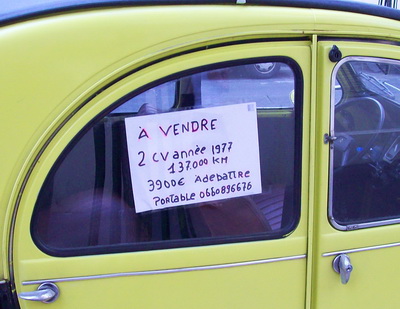 À VENDRE
2 CV année 1977
137.000 KM
3900€ A debattre
Portable 0660896676